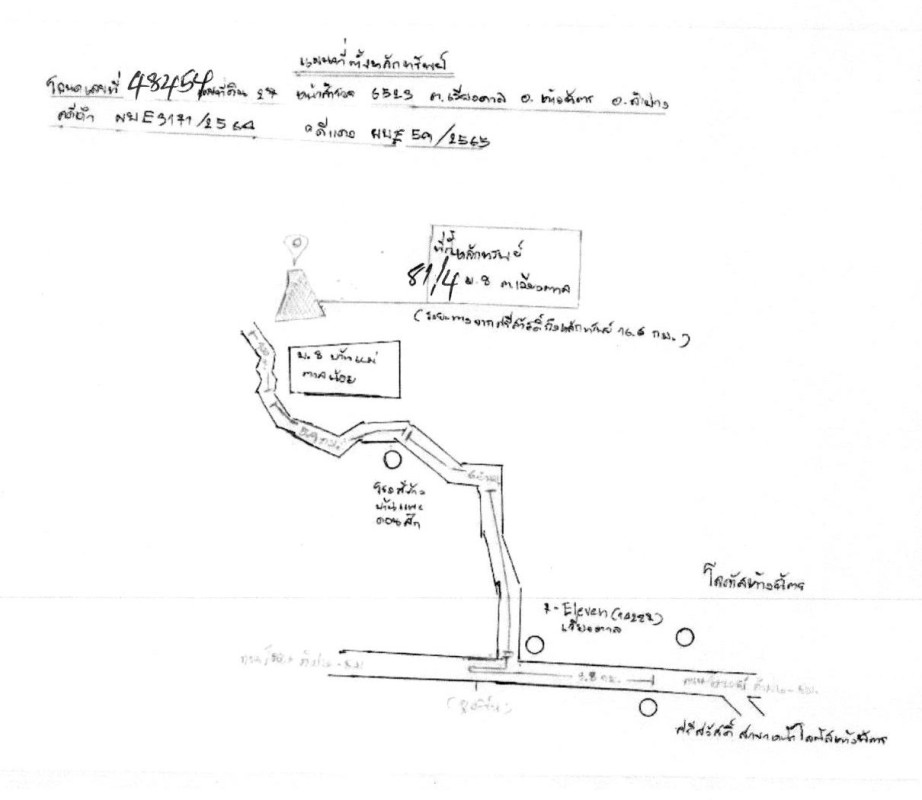 แผนที่ตั้งหลักทรัพย์
โฉนดเลขที่ 48454 เลขที่ดิน 27 หน้าสำรวจ 6523 ต.เวียงตาล อ.ห้างฉัตร จ.ลำปาง
คดีดำ ผบE3171/2564 คดีแดง ผบE 59/2565
ที่ตั้งหลักทรัพย์
81/4 ม.8 ต.เวียงตาล
(ระยะทางจากศรีสวัสดิ์ถึงหลักทรัพย์ 16.6 กม.)
ม.8 บ้านแม่
ตาลน้อย
5.9 กม.
บ้านแพะ
ดอนสัก
โลตัสห้างฉัตร
7-Eleven
เวียงตาล
(จุดกลับรถ)
ศรีสวัสดิ์ สาขาหน้าโลตัสห้างฉัตร